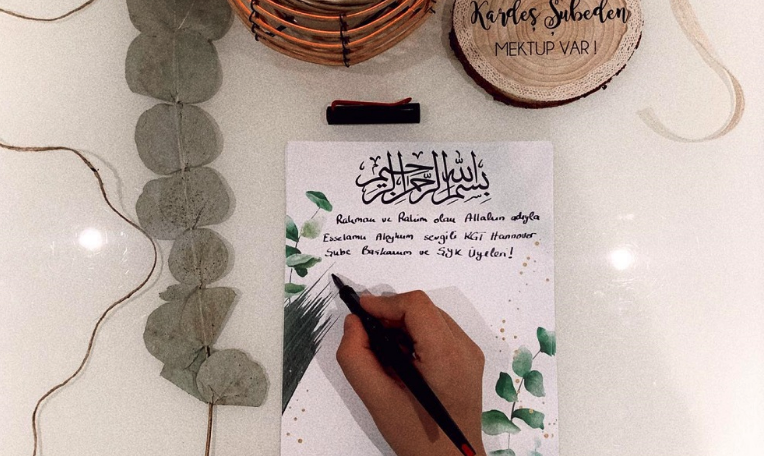 Kardeş Şubeden
MEKTUP VAR!
بسم الله الرحمن الرحيم
Rahman ve Rahim olan Allahın adıyla
Esselamu Aleykum sevgili KGT Hannover
Şube Başkanım ve ŞYK Üyeleri!